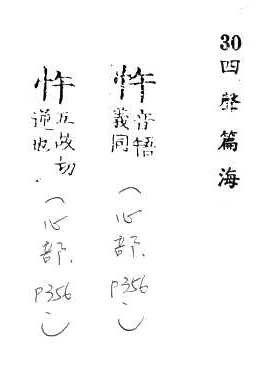 30四聲篇海
忤 音悟
義同
(心部 P356)
忤 五故切
逆也.
(心部 P356)